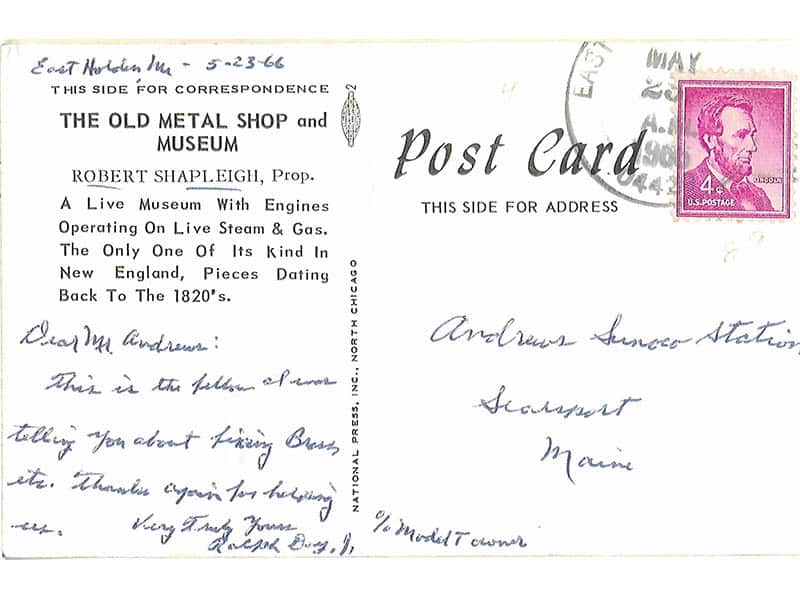 East Holden, Me - 5-23-66
THIS SIDE FOR CORRESPONDENCE
THE OLD METAL SHOP and
MUSEUM
ROBERT SHAPLEIGH, Prop.
A Live Museum With Engines
Operating On Live Steam & Gas.
The Only One Of Its Kind In
New England, Pieces Dating
Back To The 1820's.
Dear Mr. Andrews:
This is the fellow I was
telling you about fixing Brass
etc. Thanks again for helping
us. Very Truly Yours
Ralph
2
NATIONAL PRESS, INC., NORTH CHICAGO
Post Card
THIS SIDE FOR ADDRESS
EAST
MAY
A.M.
LINCOLN
4¢
U.S. POSTAGE
Andrews Sunoco Station
Searsport
Maine
c/o Model T owner